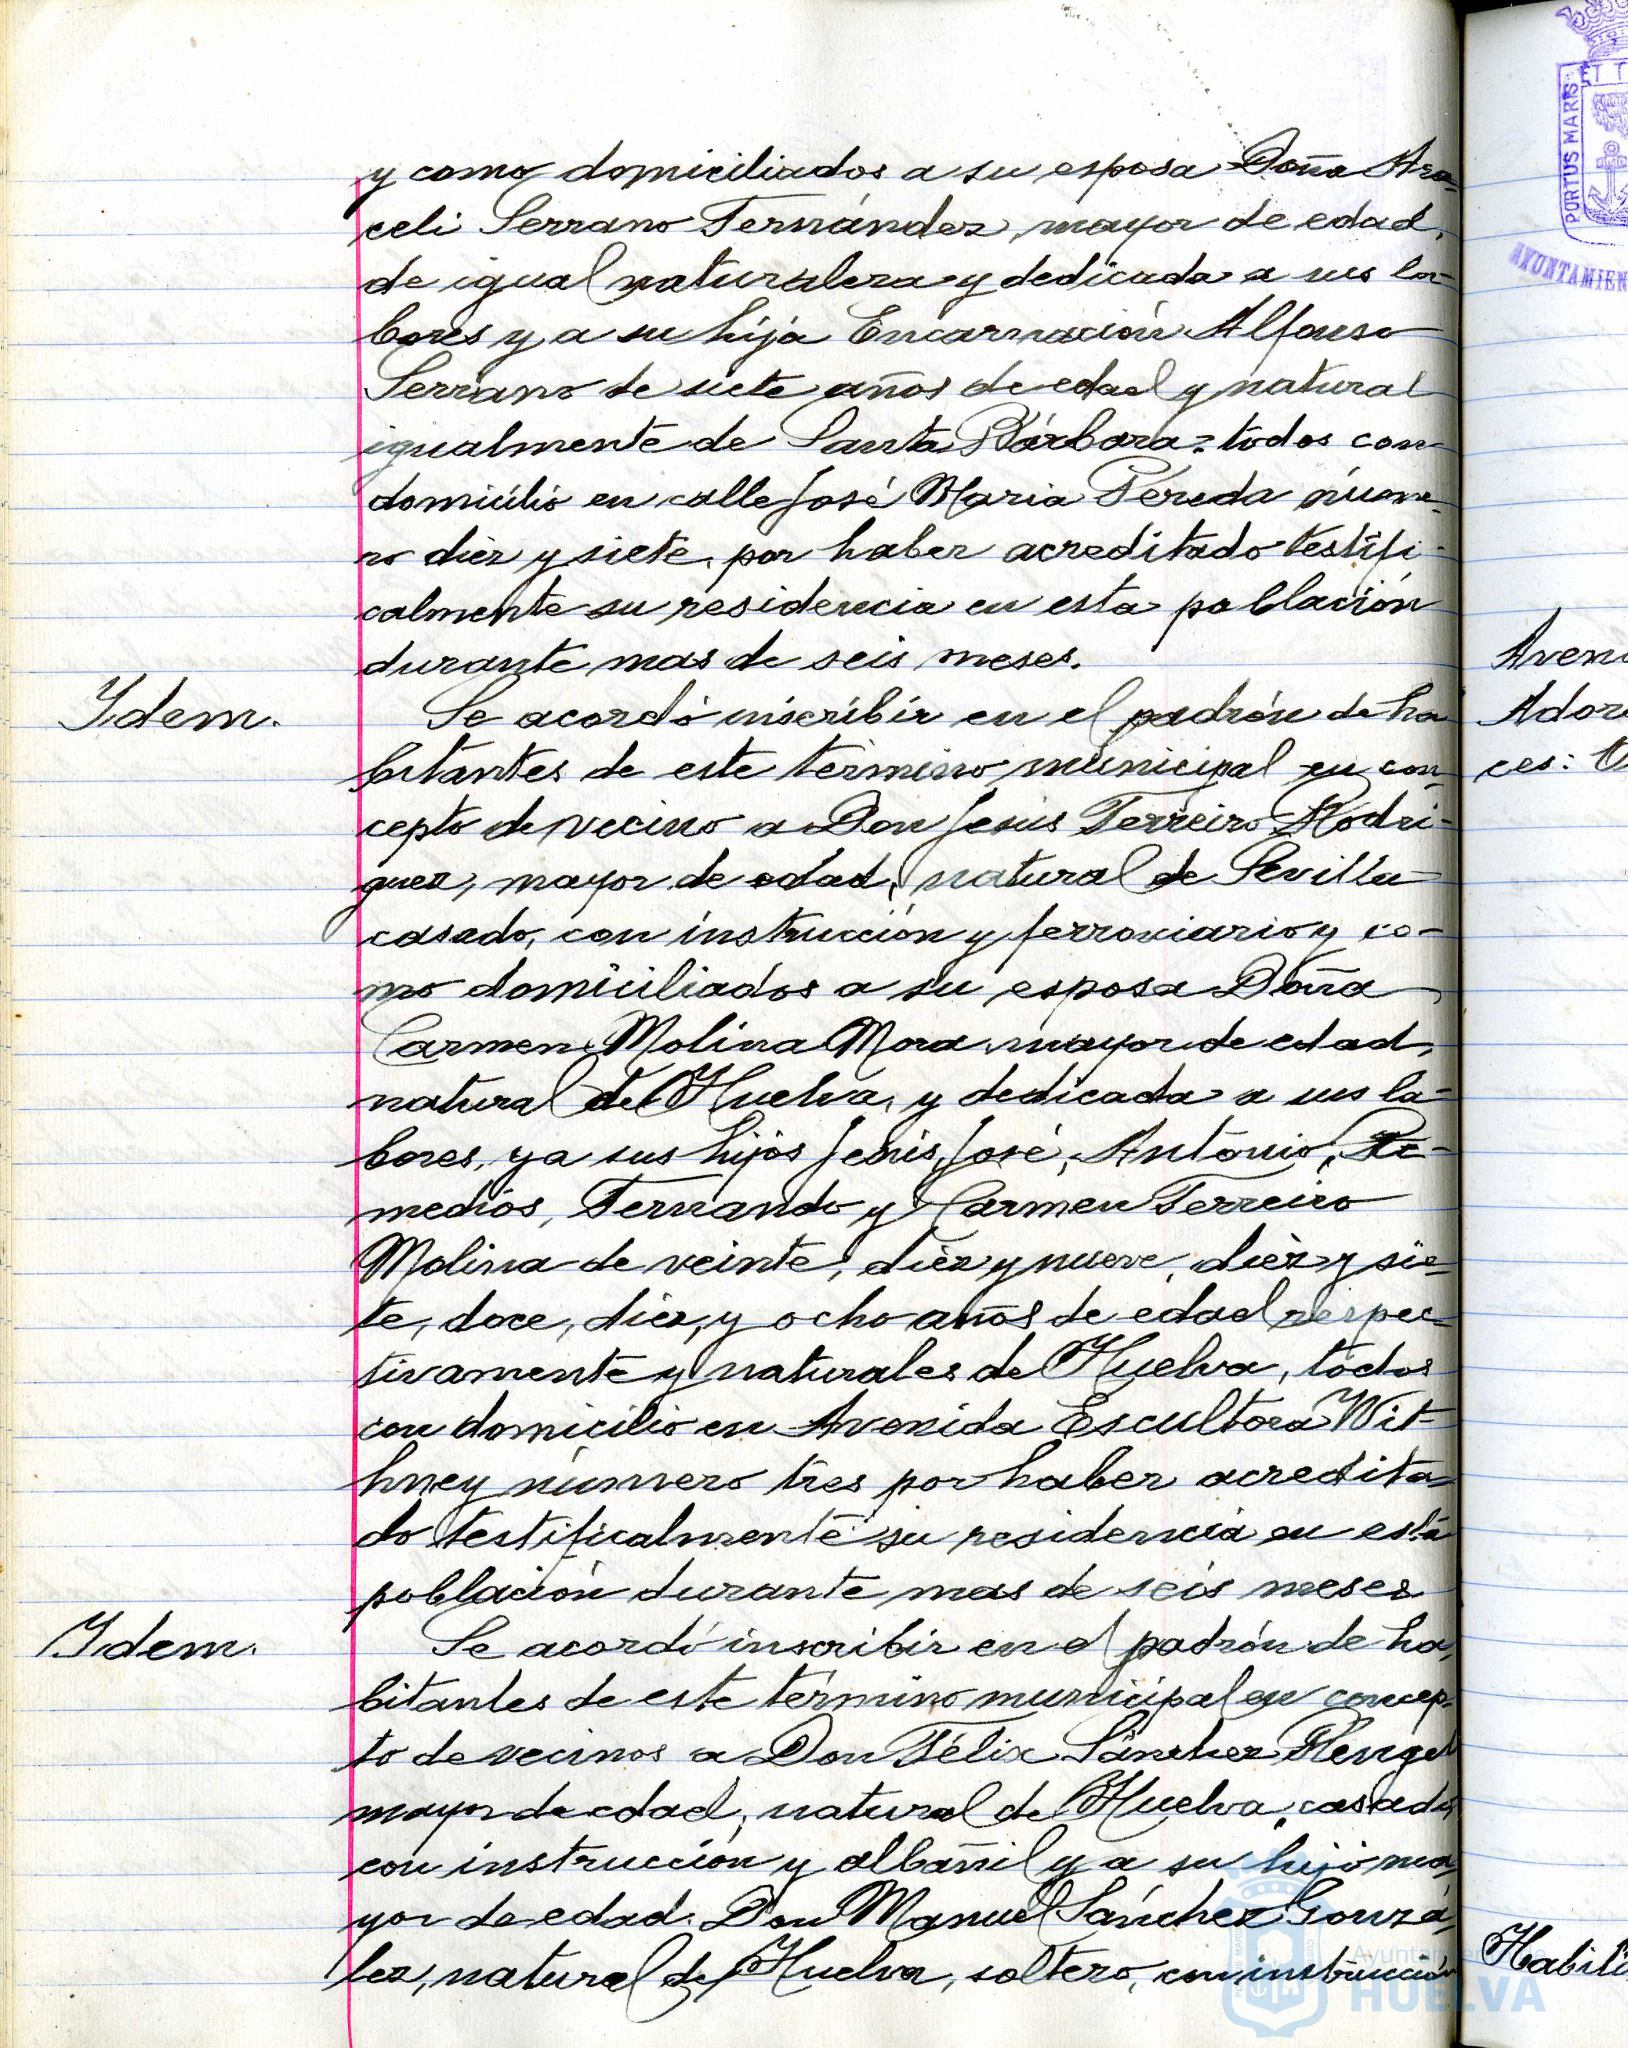 y como domiciliados a su esposa Doña Ara-
celi Serrano Fernández, mayor de edad,
de igual naturaleza y dedicada a sus la-
bores y a su hija Encarnación Alfonso
Serrano de siete años de edad y natural
igualmente de Santa Bárbara; todos con
domicilio en calle José Maria Pereda núme-
ro diez y siete, por haber acreditado testifi-
calmente su residencia en esta población
durante mas de seis meses.
Idem.
Se acordó inscribir en el padrón de ha
bitantes de este término municipal en con-
cepto de vecino a Don Jesús Ferreiro Rodri-
guez, mayor de edad, natural de Sevilla
casado, con instrucción y ferroviario y co-
mo domiciliados a su esposa Doña
Carmen Molina Mora mayor de edad,
natural de Huelva, y dedicada a sus la-
bores, y a sus hijos Jesús, José, Antonio, Re-
medios, Fernando y Carmen Ferreiro
Molina de veinte, diez y nueve, diez y sie-
te, doce, diez, y ocho años de edad respec-
tivamente y naturales de Huelva, todos
con domicilio en Avenida Escultora Wit-
hney número tres por haber acredita-
do testificalmente su residencia en esta
población durante mas de seis meses
Idem.
Se acordó inscribir en el padrón de ha-
bitantes de este término municipal en concep-
to de vecinos a Don Félix Sánchez Rengel
mayor de edad, natural de Huelva, casado,
con instrucción y albañil y a su hijo ma-
yor de edad. Don Manuel Sánchez Gonzá-
lez, natural de Huelva, soltero, con instrucción
PORTUS MARIS ET T
AYUNTAMIEN
Aveni
Adore
ces: O
Habili
Ayuntamiento de
HUELVA